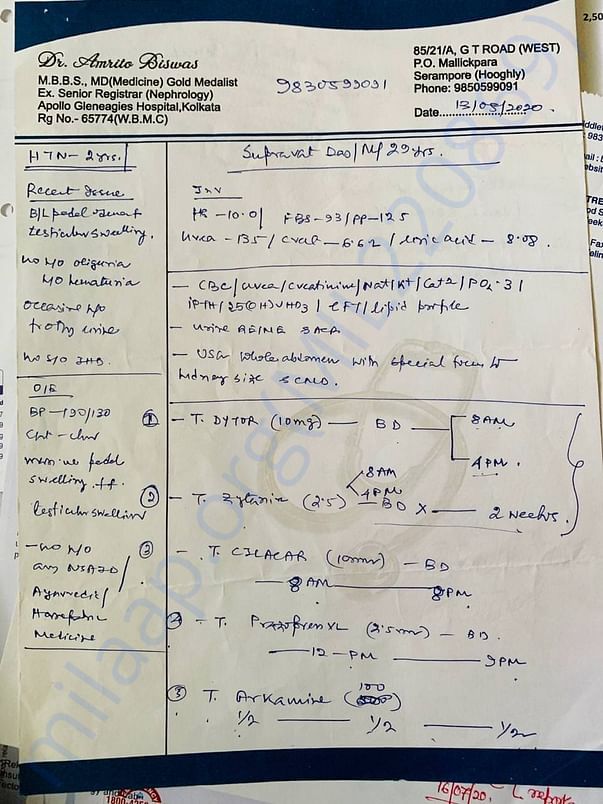 Dr. Amrito Biswas
M.B.B.S., MD(Medicine) Gold Medalist
Ex. Senior Registrar (Nephrology)
Apollo Gleneagies Hospital,Kolkata
Rg No.- 65774(W.B.M.C)
9830599091
85/21/A, G T ROAD (WEST)
P.O. Mallickpara
Serampore (Hooghly)
Phone: 9850599091
Date 13/05/2020
HTN - 2 yrs.
Recent issue
B/L pedal
testicular swelling.
no H/O oliguria
H/O hematuria
occasional H/O
frothy urine
O/E
BP - 190/130
Chest - clear
pedal
swelling ++.
testicular swelling
- no H/O
any NSAID/
Ayurvedic/
Homeopathic
Medicine
Supravat Das/M/29 yrs.
Inv
Hb - 10.0/ FBS - 93/PP - 125
Urea - 135/ Creat - 6.62/ Uric acid - 8.08.
- CBC/Urea/Creatinine/Na+/K+/Ca+2/PO4-3/
iPTH/25(OH)VitD3/LFT/lipid profile
- Urine RE/ME
- USG whole abdomen with special focus to
kidney size & CMD.
① - T. DYTOR (10mg) — BD — 8AM
4PM.
② - T. Zytanix (2.5) — BD x — 2 weeks.
8AM
4PM
③ - T. CILACAR (10mg) - BD
8AM — 8PM
④ - T. XL (2.5mg) - BD.
12-PM — 9PM
⑤ T. Arkamine (100)
1/2 — 1/2 — 1/2
milaap.org
16/07/20
2,50